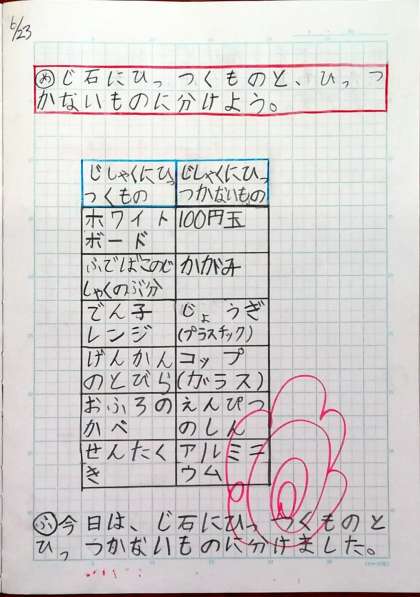 6/23
め じ石にひっつくものと、ひっつ
かないものに分けよう。
じしゃくにひっ
つくもの
じしゃくにひっ
つかないもの
ホワイト
ボード
100円玉
ふでばこのじ
しゃくのぶ分
かがみ
でん子
レンジ
じょうぎ
(プラスチック)
げんかん
のとびら
コップ
(ガラス)
おふろの
かべ
えんぴつ
のしん
せんたく
き
アルミニ
ウム
ふ 今日は、じ石にひっつくものと
ひっつかないものに分けました。